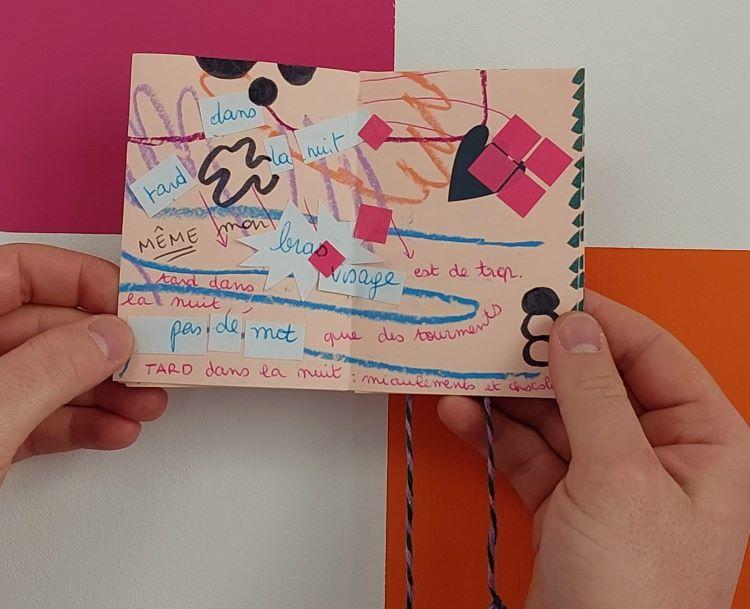 dans
tard la nuit
MÊME mon
bras
visage est de trop.
tard dans
la nuit
pas de mot que des tourments
TARD dans la nuit : miaulements et chocol